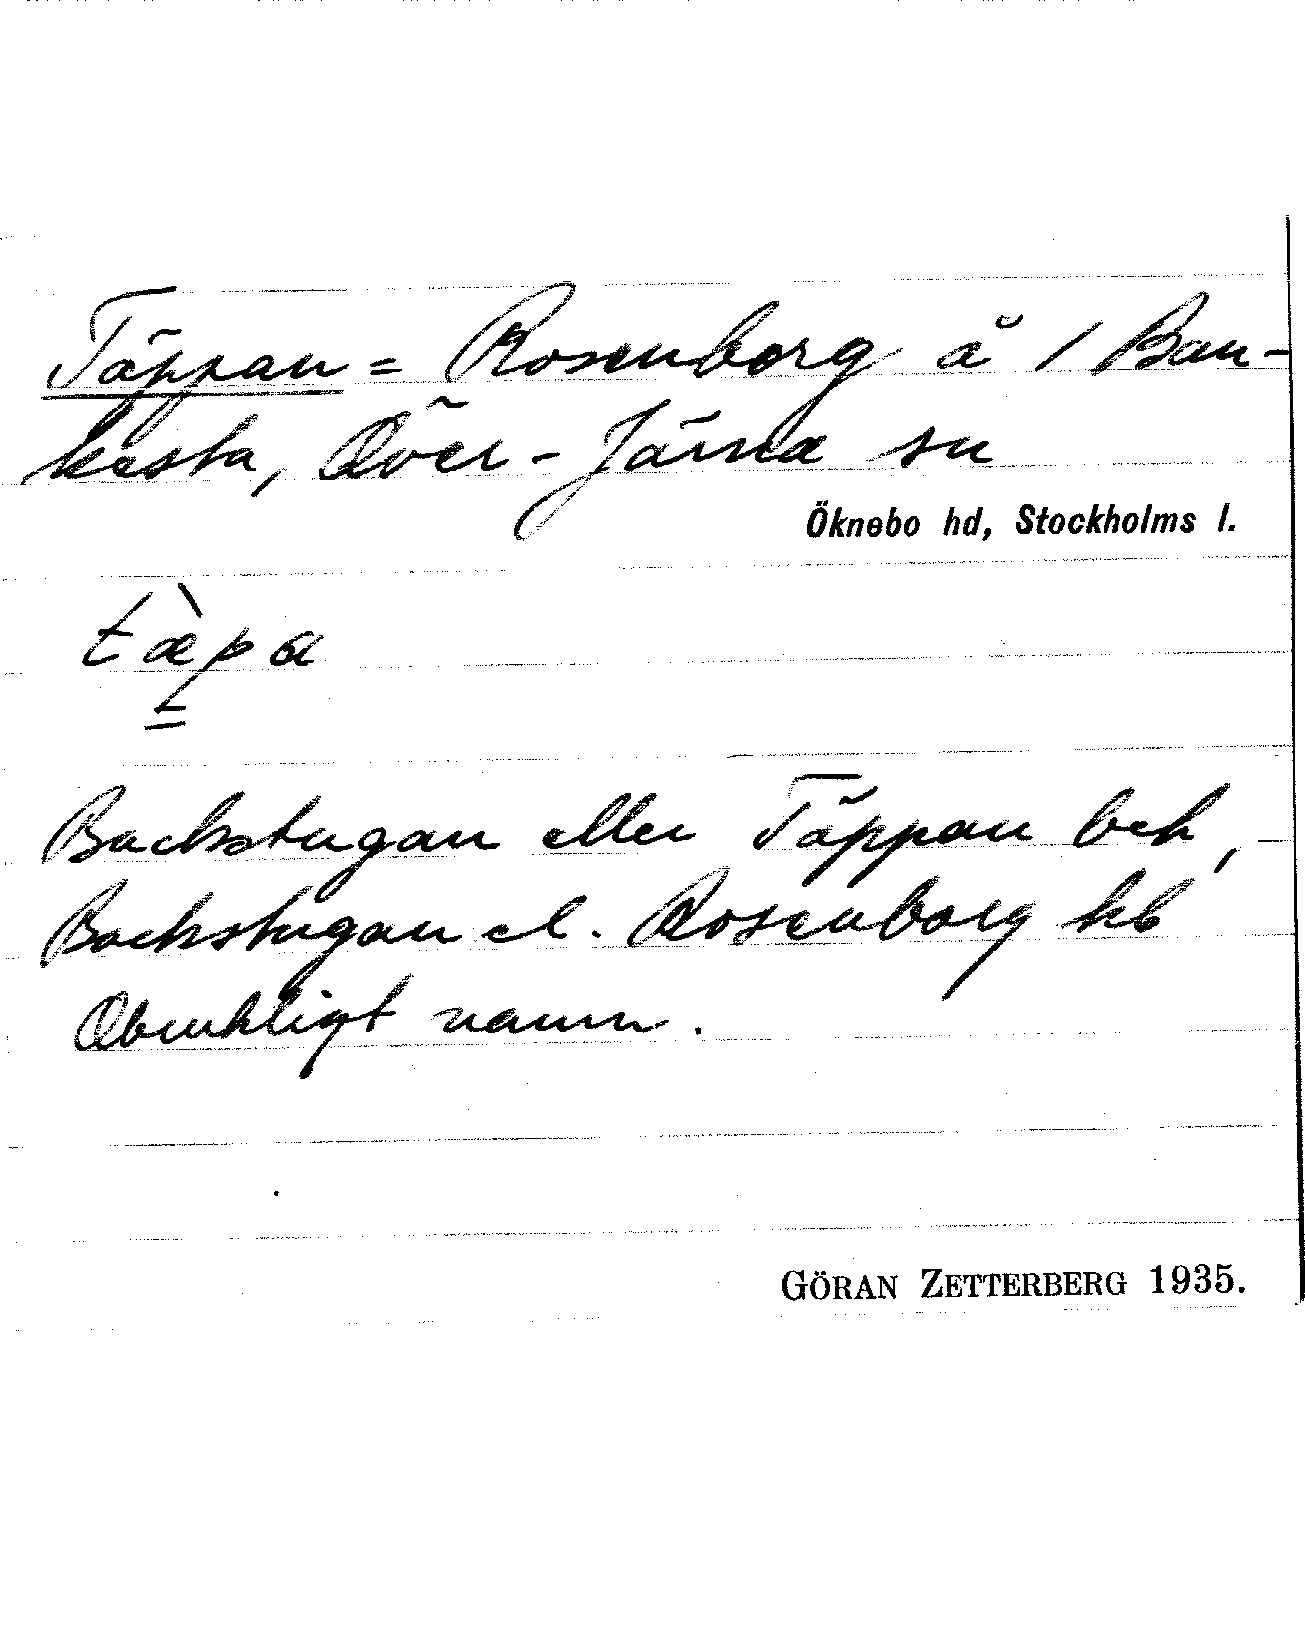 Täppan = Rosenborg å 1 Ban-
kesta, Över-Järna sn
Öknebo hd, Stockholms l.
tæ̀pa
Backstugan eller Täppan bek,
Backstugan el. Rosenborg kb
Obrukligt namn.
GÖRAN ZETTERBERG 1935.